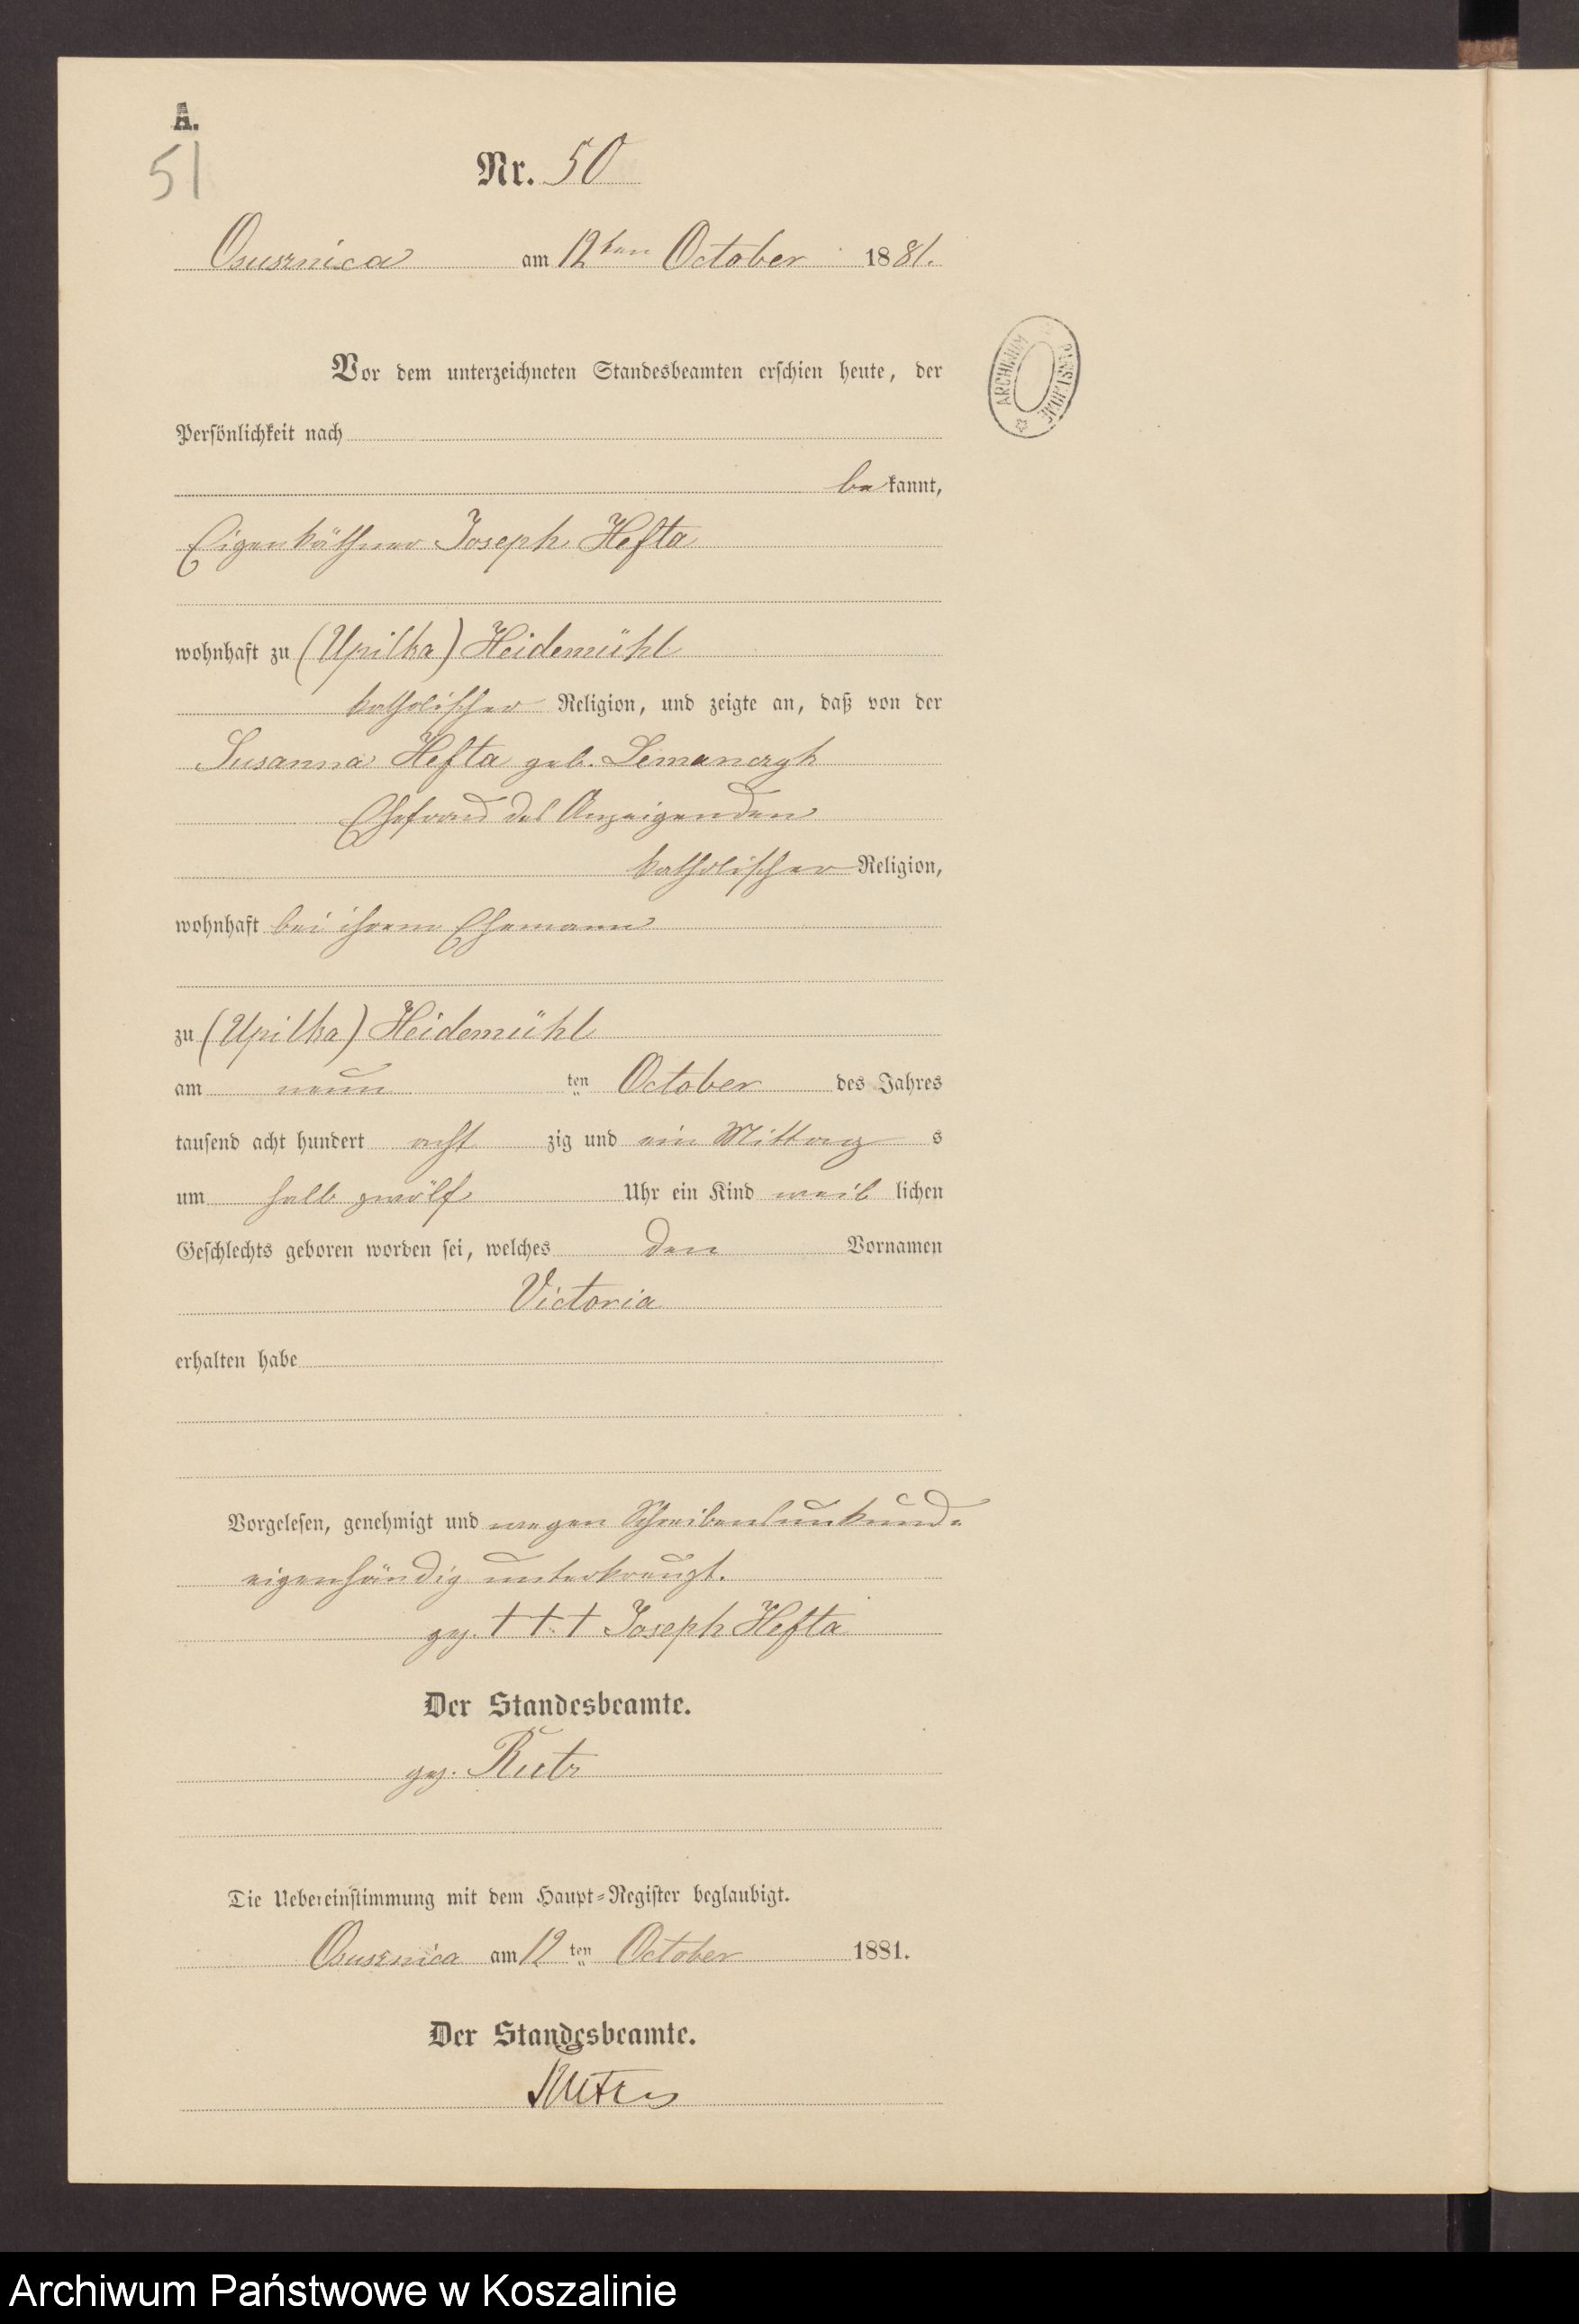 A.
51
Nr. 50
Osusznica am 12ten October 1881.
Vor dem unterzeichneten Standesbeamten erschien heute, der
ARCHIWUM PAŃSTWOWE
Persönlichkeit nach
bekannt,
Eigenkäthner Joseph Hefta
wohnhaft zu (Upilka) Heidemühl
katholischer Religion, und zeigte an, daß von der
Susanna Hefta geb. Lemanczyk
Ehefrau des Anzeigenden
katholischer Religion,
wohnhaft bei ihrem Ehemann
zu (Upilka) Heidemühl
am neun ten October des Jahres
tausend acht hundert acht zig und ein Mittag s
um halb zwölf Uhr ein Kind weib lichen
Geschlechts geboren worden sei, welches den Vornamen
Victoria
erhalten habe
Vorgelesen, genehmigt und wegen Schreibensunkunde
eigenhändig unterkreuzt.
gez. † † † Joseph Hefta
Der Standesbeamte.
gez. Kutz
Die Uebereinstimmung mit dem Haupt-Register beglaubigt.
Osusznica am 12 ten October 1881.
Der Standesbeamte.
Archiwum Państwowe w Koszalinie